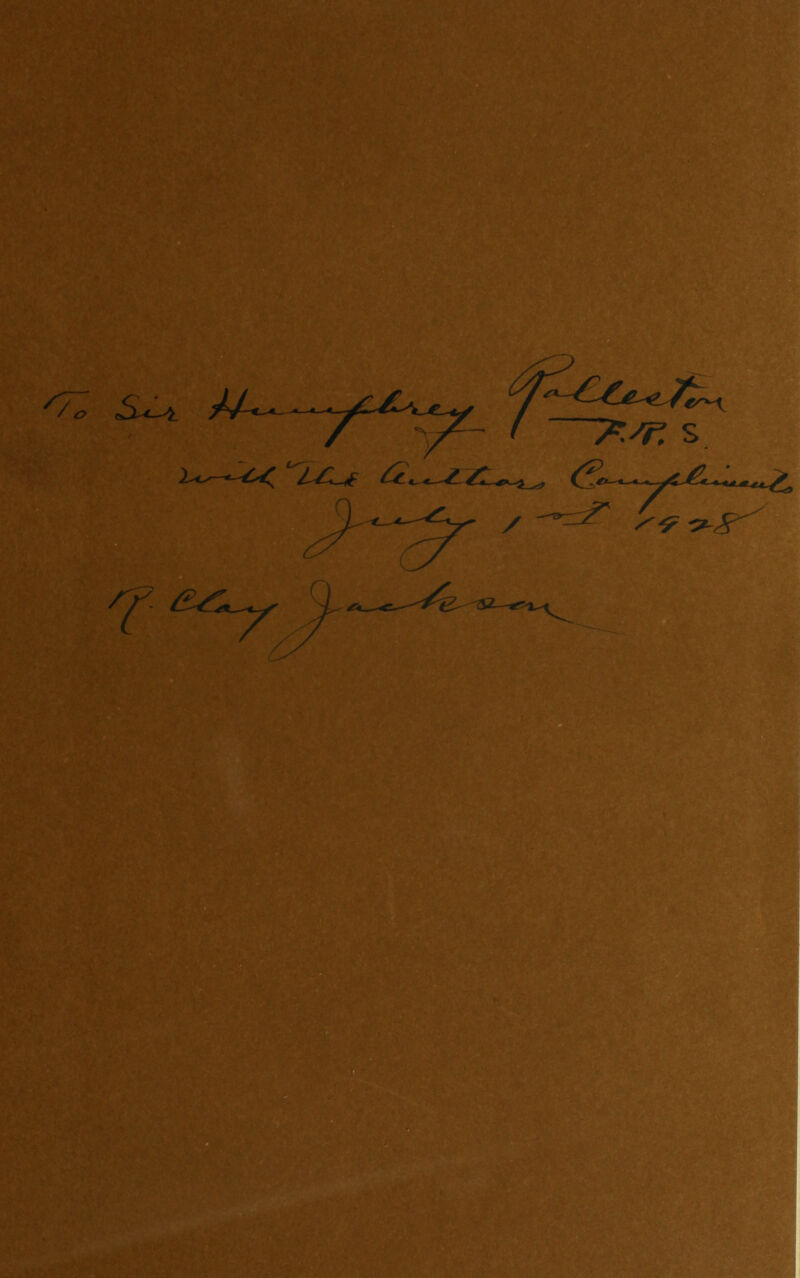 To Sir Humphrey Rolleston
F.R.S.
with the Authors Compliments
July 1st 1928
R. Clay Jackson